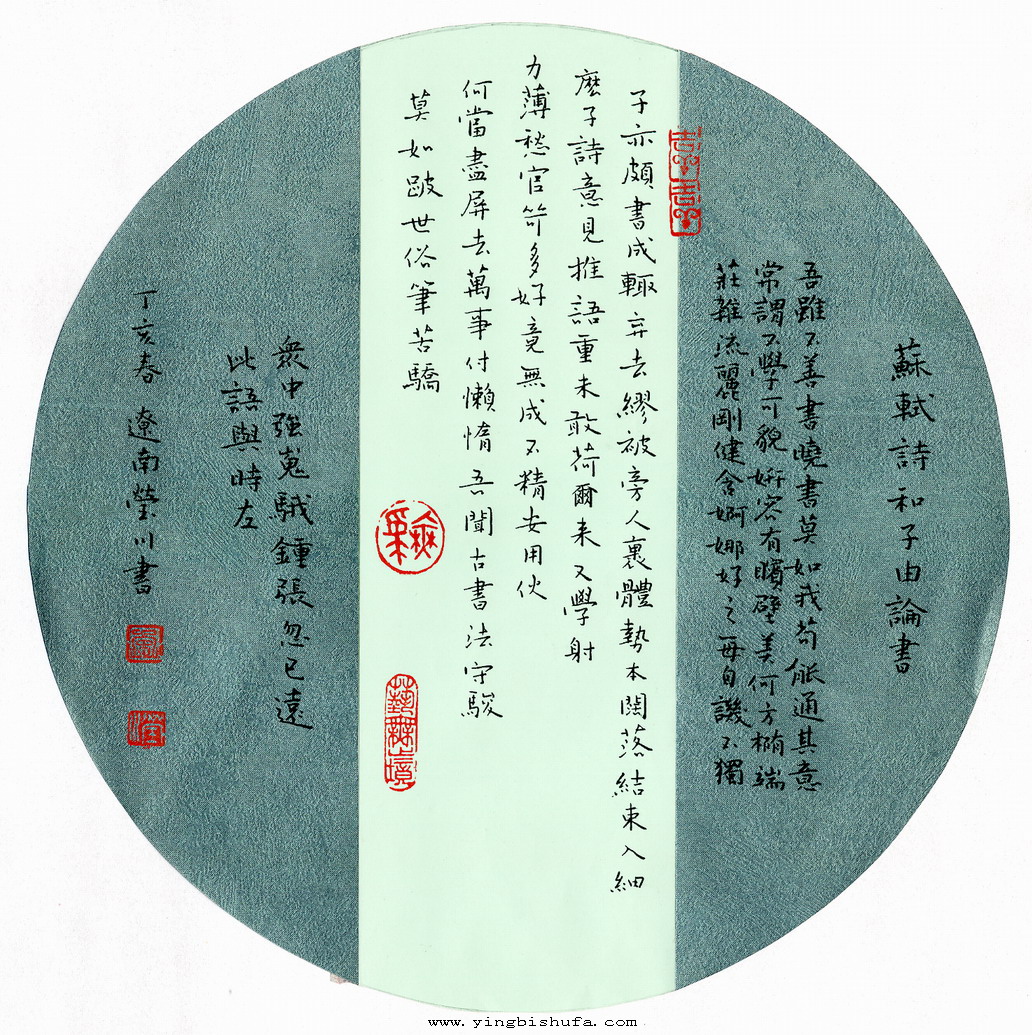 蘇軾詩和子由論書
吾雖不善書曉書莫如我苟能通其意
常謂不學可貌妍容有矉璧美何方橢端
莊雜流麗剛健含婀娜好之每自譏不獨
子亦頗書成輒弃去繆被旁人裹體勢本闊落結束入細
麽子詩意見推語重未敢荷爾来又學射
力薄愁官笴多好竟無成不精安用伙
何當盡屏去萬事付懶惰吾聞古書法守駿
莫如跛世俗筆苦驕
衆中強嵬騀鍾張忽已遠
此語與時左
丁亥春 遼南瑩川書
藝無止境
www.yingbishufa.com